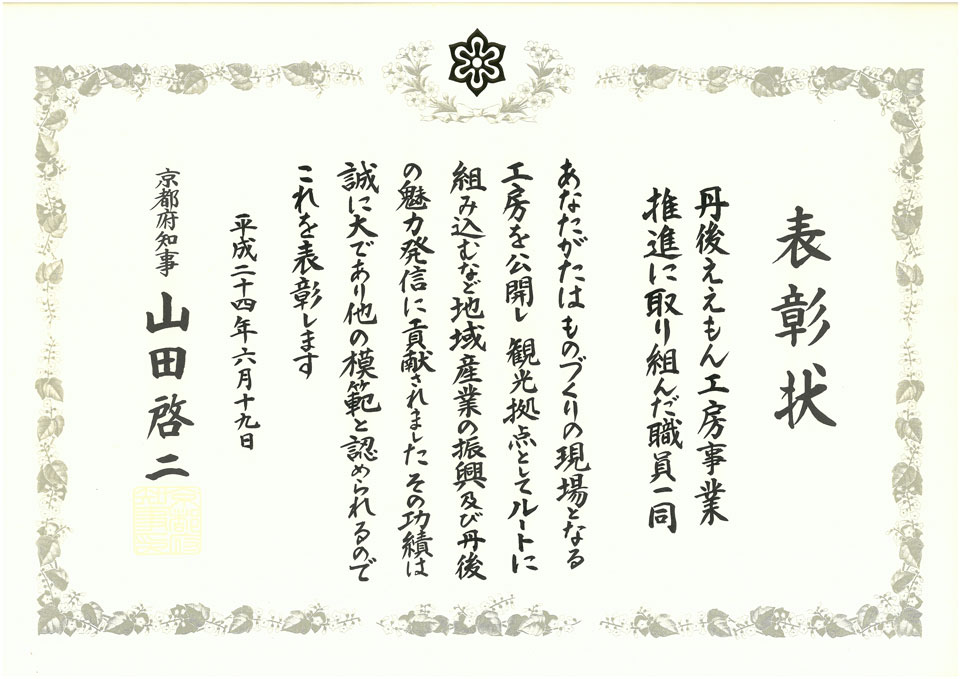 表彰状
丹後ええもん工房事業
推進に取り組んだ職員一同
あなたがたはものづくりの現場となる
工房を公開し観光拠点としてルートに
組み込むなど地域産業の振興及び丹後
の魅力発信に貢献されましたその功績は
誠に大であり他の模範と認められるので
これを表彰します
平成二十四年六月十九日
京都府知事 山田啓二